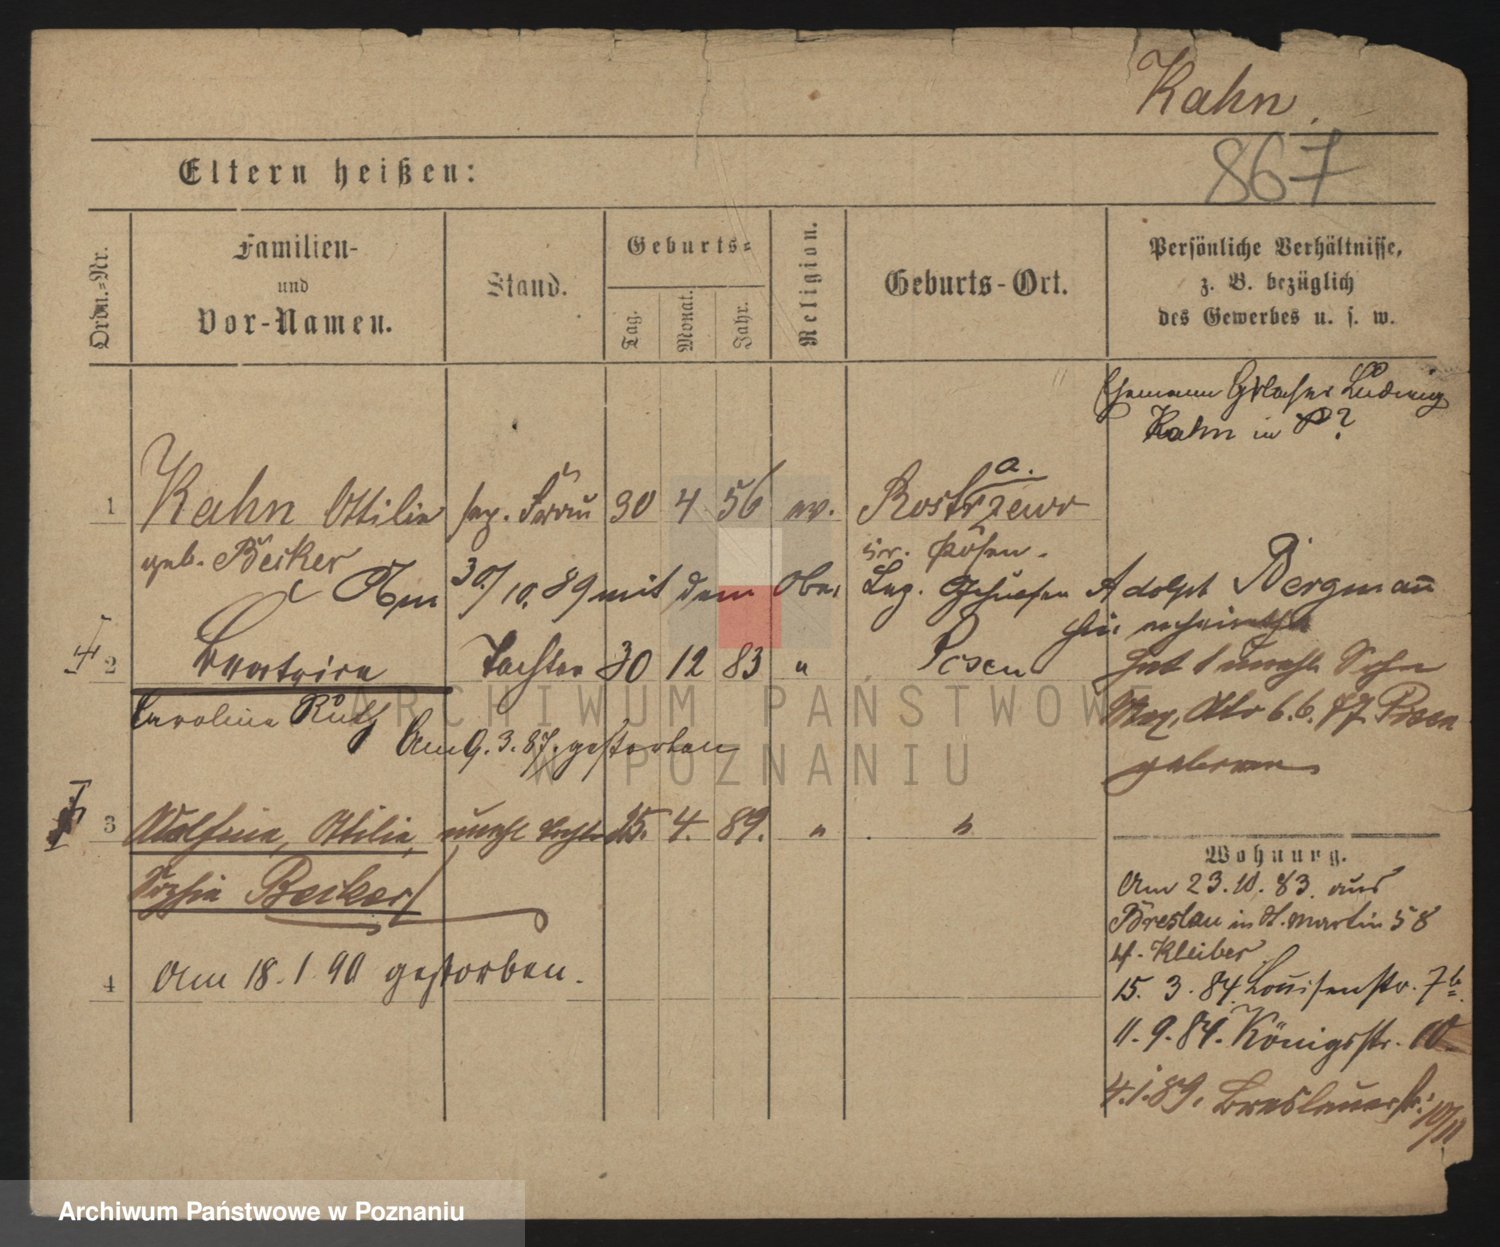 Kahn.
867
Eltern heißen:
Ordn.-Nr.
Familien-
und
Vor-Namen.
Stand.
Geburts-
Tag.
Monat.
Jahr.
Religion.
Geburts-Ort.
Persönliche Verhältnisse,
z. B. bezüglich
des Gewerbes u. s. w.
Ehemann Ludwig
Kahn in P?
1 Kahn Ottilie sep. Frau 30 4 56 ev. Rostrzewo a.
geb. Becker Kr. Posen.
Am 30/10.89 mit dem Ober Laz. Gehülfen Adolph Bergmann
hier
2 Beatrice Tochter 30 12 83 " Posen
hat 1 unehl Sohn
Caroline Ruth
Max, Otto 6.6.87. Posen
Am 9.3.87. gestorben
geboren
3 Ottilie, unehl Tochter 25. 4. 89. " "
Sophie Becker
4 Am 18.1.90 gestorben.
Wohnung.
Am 23.10.83 aus
Breslau in St. Martin 58
b. Kleiber.
15. 3. 84. Louisenstr. 7b
11. 9. 84. Königsstr. 10
4.1.89. Breslauerstr. 10/11
ARCHIWUM PAŃSTWOWE
W POZNANIU
Archiwum Państwowe w Poznaniu